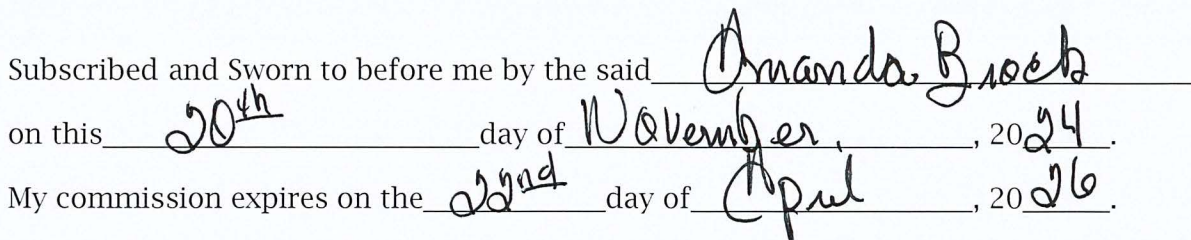 Subscribed and Sworn to before me by the said Amanda Brock
on this 20th day of November, 2024.
My commission expires on the 22nd day of April, 2026.